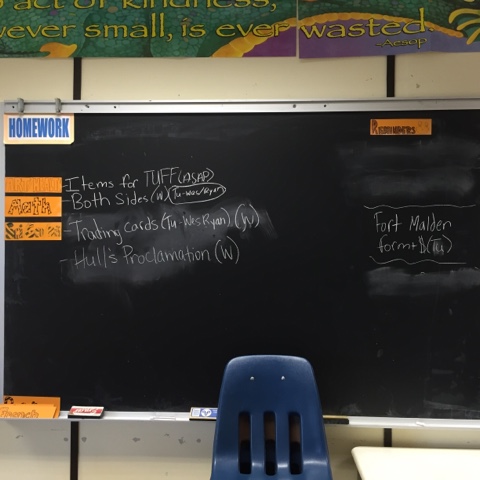 act of kindness,
wever small, is ever wasted
-Aesop
HOMEWORK
Reminders
- Items for TUFF (ASAP)
Math
- Both Sides (W) (Tu-Wes/Ryan)
- Trading cards (Tu-Wes Ryan) (W)
- Hull's Proclamation (W)
Fort Malden
form + $ (Th)
French